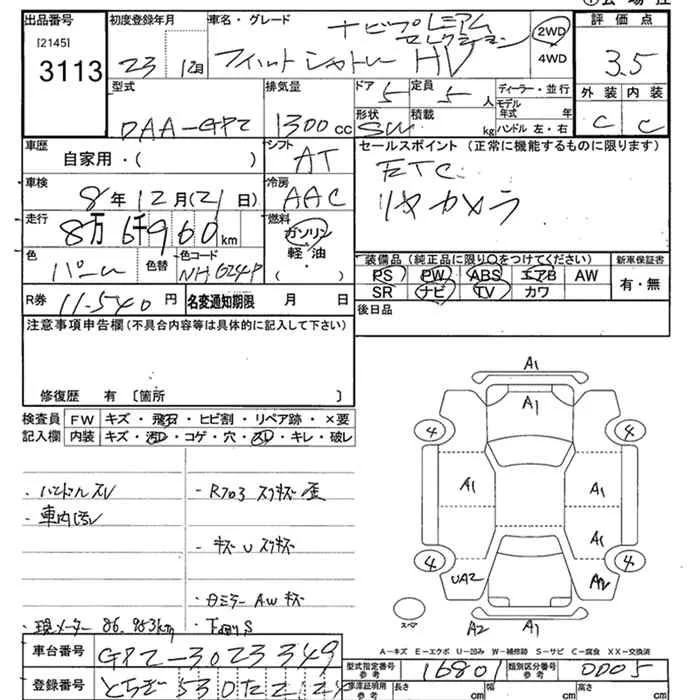 出品番号 初度登録年月 車名・グレード 評価点
[2145]
3113
23 12月
ナビプレミアム
セレクション
フィットシャトル HV
2WD
4WD
3.5
外装 内装
C C
型式 排気量 ドア 定員 ディーラー・並行
DAA-GP2 1300cc 5 5人
モデル年式 年
形状 積載 kg ハンドル 左・右
SW
車歴 シフト セールスポイント (正常に機能するものに限ります)
自家用・( ) AT
ETC
車検 冷房
8年12月(21日) AAC
リヤカメラ
走行 燃料
8万6千960km ガソリン
軽油
( )
色 色替 色コード
パール NH624P
装備品(純正品に限り○をつけてください) 新車保証書
PS PW ABS エアB AW 有・無
SR ナビ TV カワ
R券 11-540円 名変通知期限 月 日
後日品
注意事項申告欄(不具合内容等は具体的に記入して下さい)
修復歴 有 〔箇所 〕
検査員 FW キズ・飛石・ヒビ割・リペア跡・×要
記入欄 内装 キズ・汚レ・コゲ・穴・スレ・キレ・破レ
・ハンドルスレ
・車内汚
・キズUスリキズ
・現メーター 86,963km
・下廻りS
A1
A1
4 4
A1 A1
A1
4 4
UA2 A2
A1
A2 A1
スペア
A-キズ E-エクボ U-凹み W-補修跡 S-サビ C-腐食 XX-交換済
車台番号 GP2-3023349
型式指定番号 参考 16801 類別区分番号 参考 0005
登録番号 とちぎ530
車庫証明用 参考 長さ cm 幅 cm 高さ cm